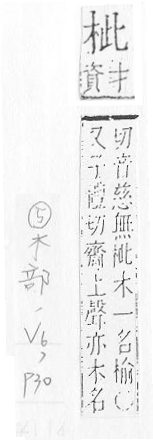 㭰
才
資
切音慈無㭰木一名棆○
又子禮切齎上聲亦木名
⑤木部、V6、P30